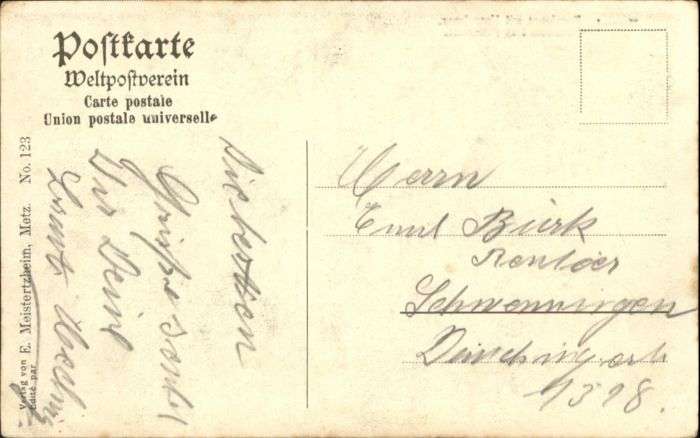 Postkarte
Weltpostverein
Carte postale
Union postale universelle
Verlag von E. Meistertzheim, Metz. No. 123
Edité par
Die besten
Grüße sendet
Dir Dein
Herrn
Emil Bürk
Rentier
Schwenningen